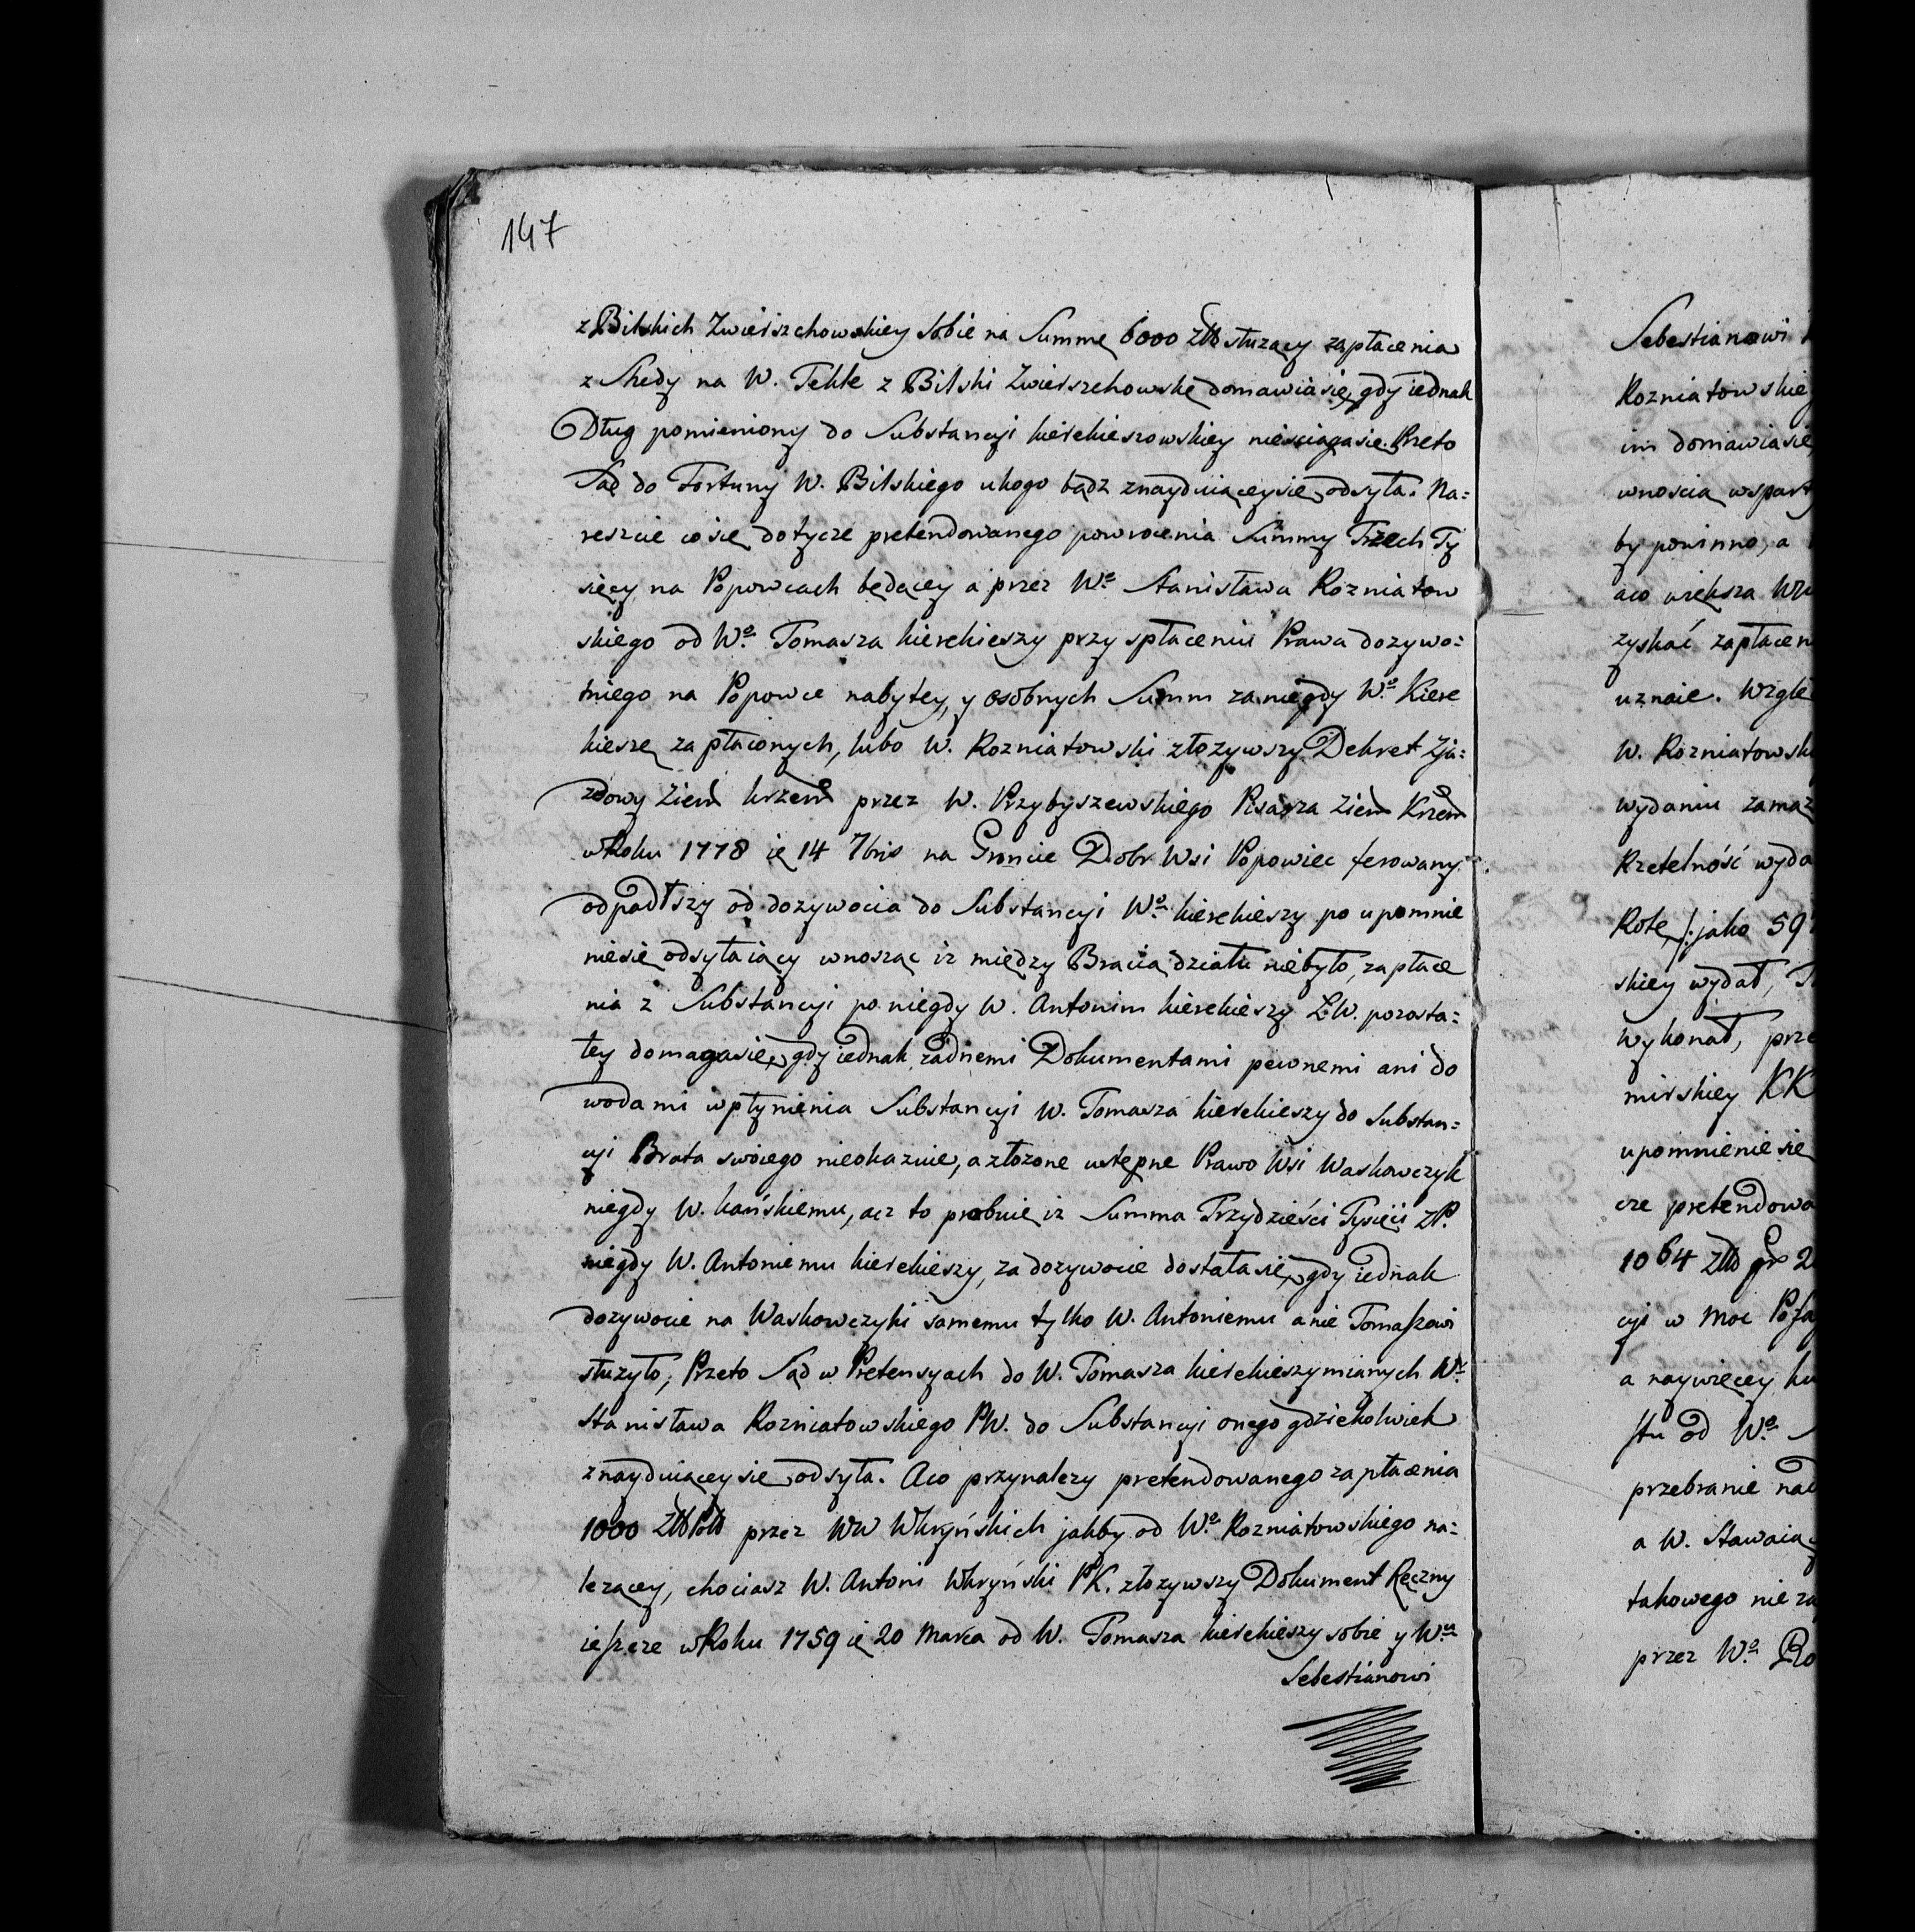 147
z Bilskich Zwierszchowskiey sobie na Summę 6000 Złłł służący zapłacenia
z Shedy na W. Teklę z Bilski Zwierszchowskę domawia się, gdy iednak
Dług pomieniony do Substancyi kierekieszowskiey niesciąga się. Przeto
Sąd do Fortuny W. Bilskiego ukogo bądz znayduiącey się odsyła. Na=
reszcie co się dotycze pretendowanego powrocenia Summy Trzech Ty
sięcy na Popowcach będącey a przez Wo. Stanisława Rozniatow
skiego od Wo. Tomasza kierekieszy przy spłaceniu Prawa dozywo=
tniego na Popowce nabytey, y osobnych Summ za niegdy Wo. Kiere
kieszę zapłaconych, lubo W. Rozniatowski złozywszy Dekret Zja=
zdowy Ziem krzem przez W. Przybyszewskiego Pisarza Ziem Krzem
w Roku 1778 ię 14 7bris na Groncie Dobr Wsi Popowiec ferowany
odpadłszy od dozywocia do Substancyi Wo. kierekieszy po upomnie
nie się odsyłaiący wnosząc iz między Bracią działu niebyło, zapłace
nia z Substancyi po niegdy W. Antonim kierekieszy Ł.W. pozosta=
łey domaga się, gdy iednak żadnemi Dokumentami pewnemi ani do
wodami wpłynienia Substancyi W. Tomasza kierekieszy do Substan=
cyi Brata swoiego nieokazuie, a złożone ustępne Prawo Wsi Waskowczyk
niegdy W. kańskiemu, acz to probuie iz Summa Trzydzieści Tysięcy zP.
niegdy W. Antoniemu kierekieszy, za dozywocie dostała się, gdy iednak
dozywocie na Waskowczyki samemu tylko W. Antoniemu a nie Tomaszowi
służyło, Przeto Sąd w Pretensyach do W. Tomasza kierekieszy mianych Wo.
Stanisława Rozniatowskiego PW. do Substancyi onego gdziekolwiek
znayduiącey się odsyła. Aco przynalezy pretendowanego zapłacenia
1000 Złł Poll przez WW Wkryńskich jakby od Wo. Rozniatowskiego na=
lezącey, chociasz W. Antoni Wkryński PK. złozywszy Dokument Ręczny
ieszcze w Roku 1759 ię 20 Marca od W. Tomasza kierekieszy sobie y Wu
Sebestianowi
Sebestianowi
Rozniatowskie
im domawia się
wnoscią wspart
by powinno, a
aco większa
zyskać zapłacen
uznaie. Wzglę
W. Rozniatowsk
wydaniu zamaz
Rzetelność wyda
Rotę /: jako 59
skiey wydał,
wykonał, prze
mirskiey KK
upomnienie się
cze pretendowa
1064 Złł gr 2
cyi w moc
a naywięcey
od Wo.
przebranie nad
a W. Stawaią
takowego nie za
przez Wo. Ro